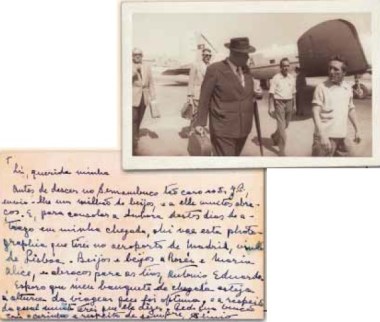 Li, querida minha
Antes de descer no Pernambuco tão caro a
envio-lhe um milhão de beijos, e a elle muitos abra-
ços. E, para consolar a dos dias de a-
trazo em minha chegada, ahi vae esta photo-
graphia que tirei no aeroporto de Madrid, vindo
de Lisboa. Beijos e beijos a e Maria
Alice, e abraços para os tios, Antonio Eduardo
Espero que meu banquete de chegada esteja
á altura da viagem que foi optima, e a respeito
da qual muito terei que lhe dizer.
com carinho e respeito de sempre,